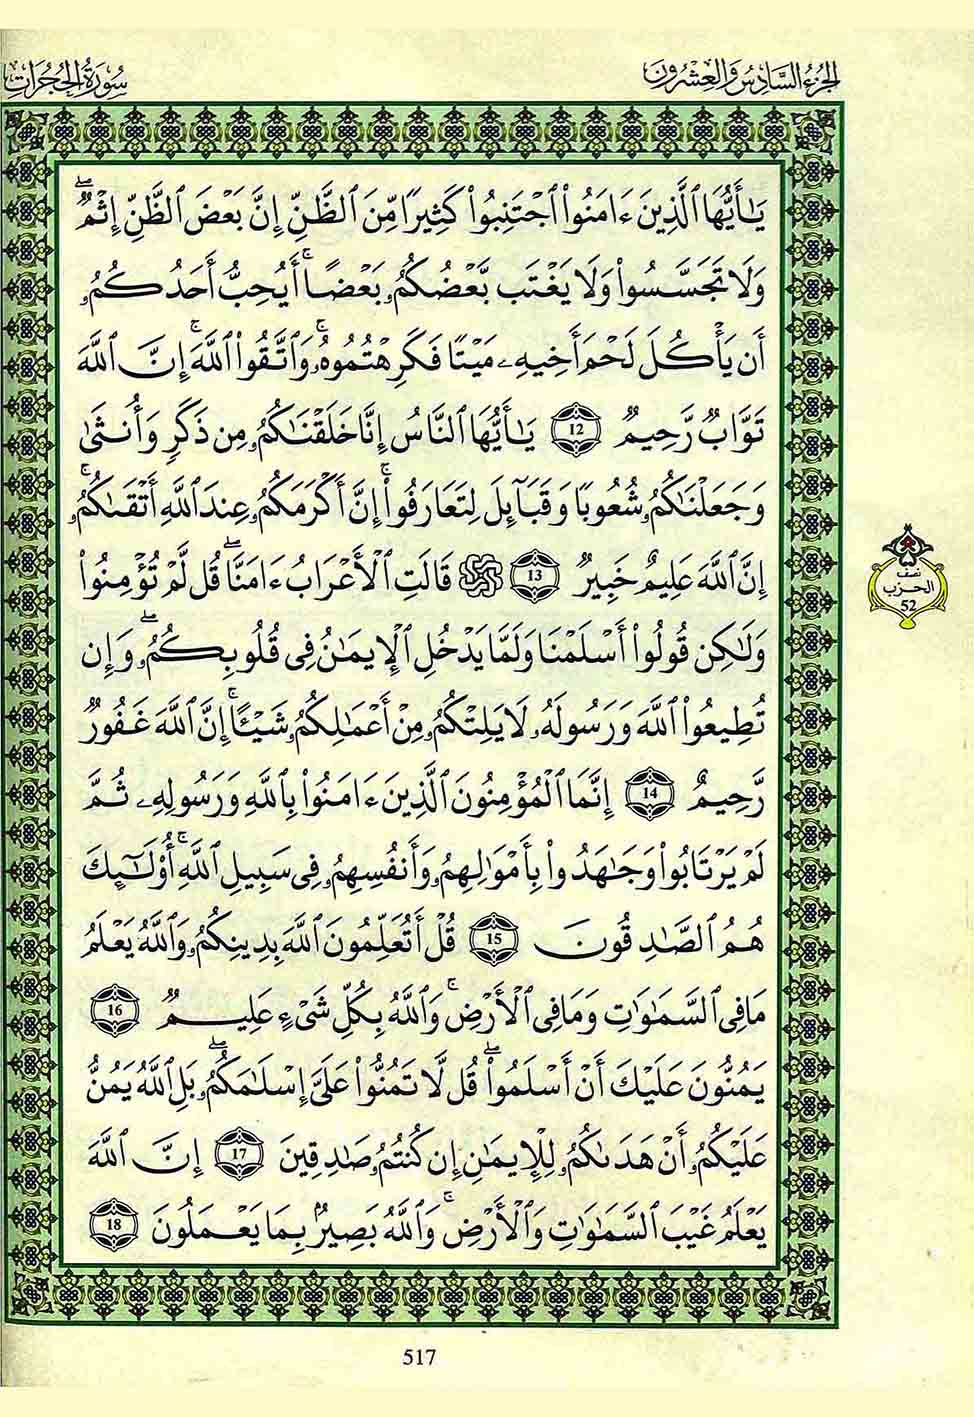 الجزء السادس والعشرون
سورة الحجرات
يَٰٓأَيُّهَا ٱلَّذِينَ ءَامَنُوا۟ ٱجْتَنِبُوا۟ كَثِيرًا مِّنَ ٱلظَّنِّ إِنَّ بَعْضَ ٱلظَّنِّ إِثْمٌ ۖ
وَلَا تَجَسَّسُوا۟ وَلَا يَغْتَب بَّعْضُكُمُۥ بَعْضًا ۚ أَيُحِبُّ أَحَدُكُمُۥ
أَن يَأْكُلَ لَحْمَ أَخِيهِ مَيْتًا فَكَرِهْتُمُوهُۥ ۚ وَٱتَّقُوا۟ ٱللَّهَ ۚ إِنَّ ٱللَّهَ
تَوَّابٌ رَّحِيمٌ 12 يَٰٓأَيُّهَا ٱلنَّاسُ إِنَّا خَلَقْنَٰكُمُۥ مِن ذَكَرٍ وَأُنثَىٰ
وَجَعَلْنَٰكُمُۥ شُعُوبًا وَقَبَآئِلَ لِتَعَارَفُوا۟ ۚ إِنَّ أَكْرَمَكُمُۥ عِندَ ٱللَّهِ أَتْقَىٰكُمُۥ ۚ
إِنَّ ٱللَّهَ عَلِيمٌ خَبِيرٌ 13 قَالَتِ ٱلْأَعْرَابُ ءَامَنَّا ۖ قُل لَّمْ تُؤْمِنُوا۟
وَلَٰكِن قُولُوٓا۟ أَسْلَمْنَا وَلَمَّا يَدْخُلِ ٱلْإِيمَٰنُ فِى قُلُوبِكُمُۥ ۖ وَإِن
تُطِيعُوا۟ ٱللَّهَ وَرَسُولَهُۥ لَا يَلِتْكُمُۥ مِنْ أَعْمَٰلِكُمُۥ شَيْـًٔا ۚ إِنَّ ٱللَّهَ غَفُورٌ
رَّحِيمٌ 14 إِنَّمَا ٱلْمُؤْمِنُونَ ٱلَّذِينَ ءَامَنُوا۟ بِٱللَّهِ وَرَسُولِهِۦ ثُمَّ
لَمْ يَرْتَابُوا۟ وَجَٰهَدُوا۟ بِأَمْوَٰلِهِمُۥ وَأَنفُسِهِمُۥ فِى سَبِيلِ ٱللَّهِ ۚ أُو۟لَٰٓئِكَ
هُمُ ٱلصَّٰدِقُونَ 15 قُلْ أَتُعَلِّمُونَ ٱللَّهَ بِدِينِكُمُۥ وَٱللَّهُ يَعْلَمُ
مَا فِى ٱلسَّمَٰوَٰتِ وَمَا فِى ٱلْأَرْضِ ۚ وَٱللَّهُ بِكُلِّ شَىْءٍ عَلِيمٌ 16
يَمُنُّونَ عَلَيْكَ أَنْ أَسْلَمُوا۟ ۖ قُل لَّا تَمُنُّوا۟ عَلَىَّ إِسْلَٰمَكُمُۥ ۖ بَلِ ٱللَّهُ يَمُنُّ
عَلَيْكُمُۥ أَنْ هَدَىٰكُمُۥ لِلْإِيمَٰنِ إِن كُنتُمُۥ صَٰدِقِينَ 17 إِنَّ ٱللَّهَ
يَعْلَمُ غَيْبَ ٱلسَّمَٰوَٰتِ وَٱلْأَرْضِ ۚ وَٱللَّهُ بَصِيرٌۢ بِمَا يَعْمَلُونَ 18
نصف
الحزب
52
517